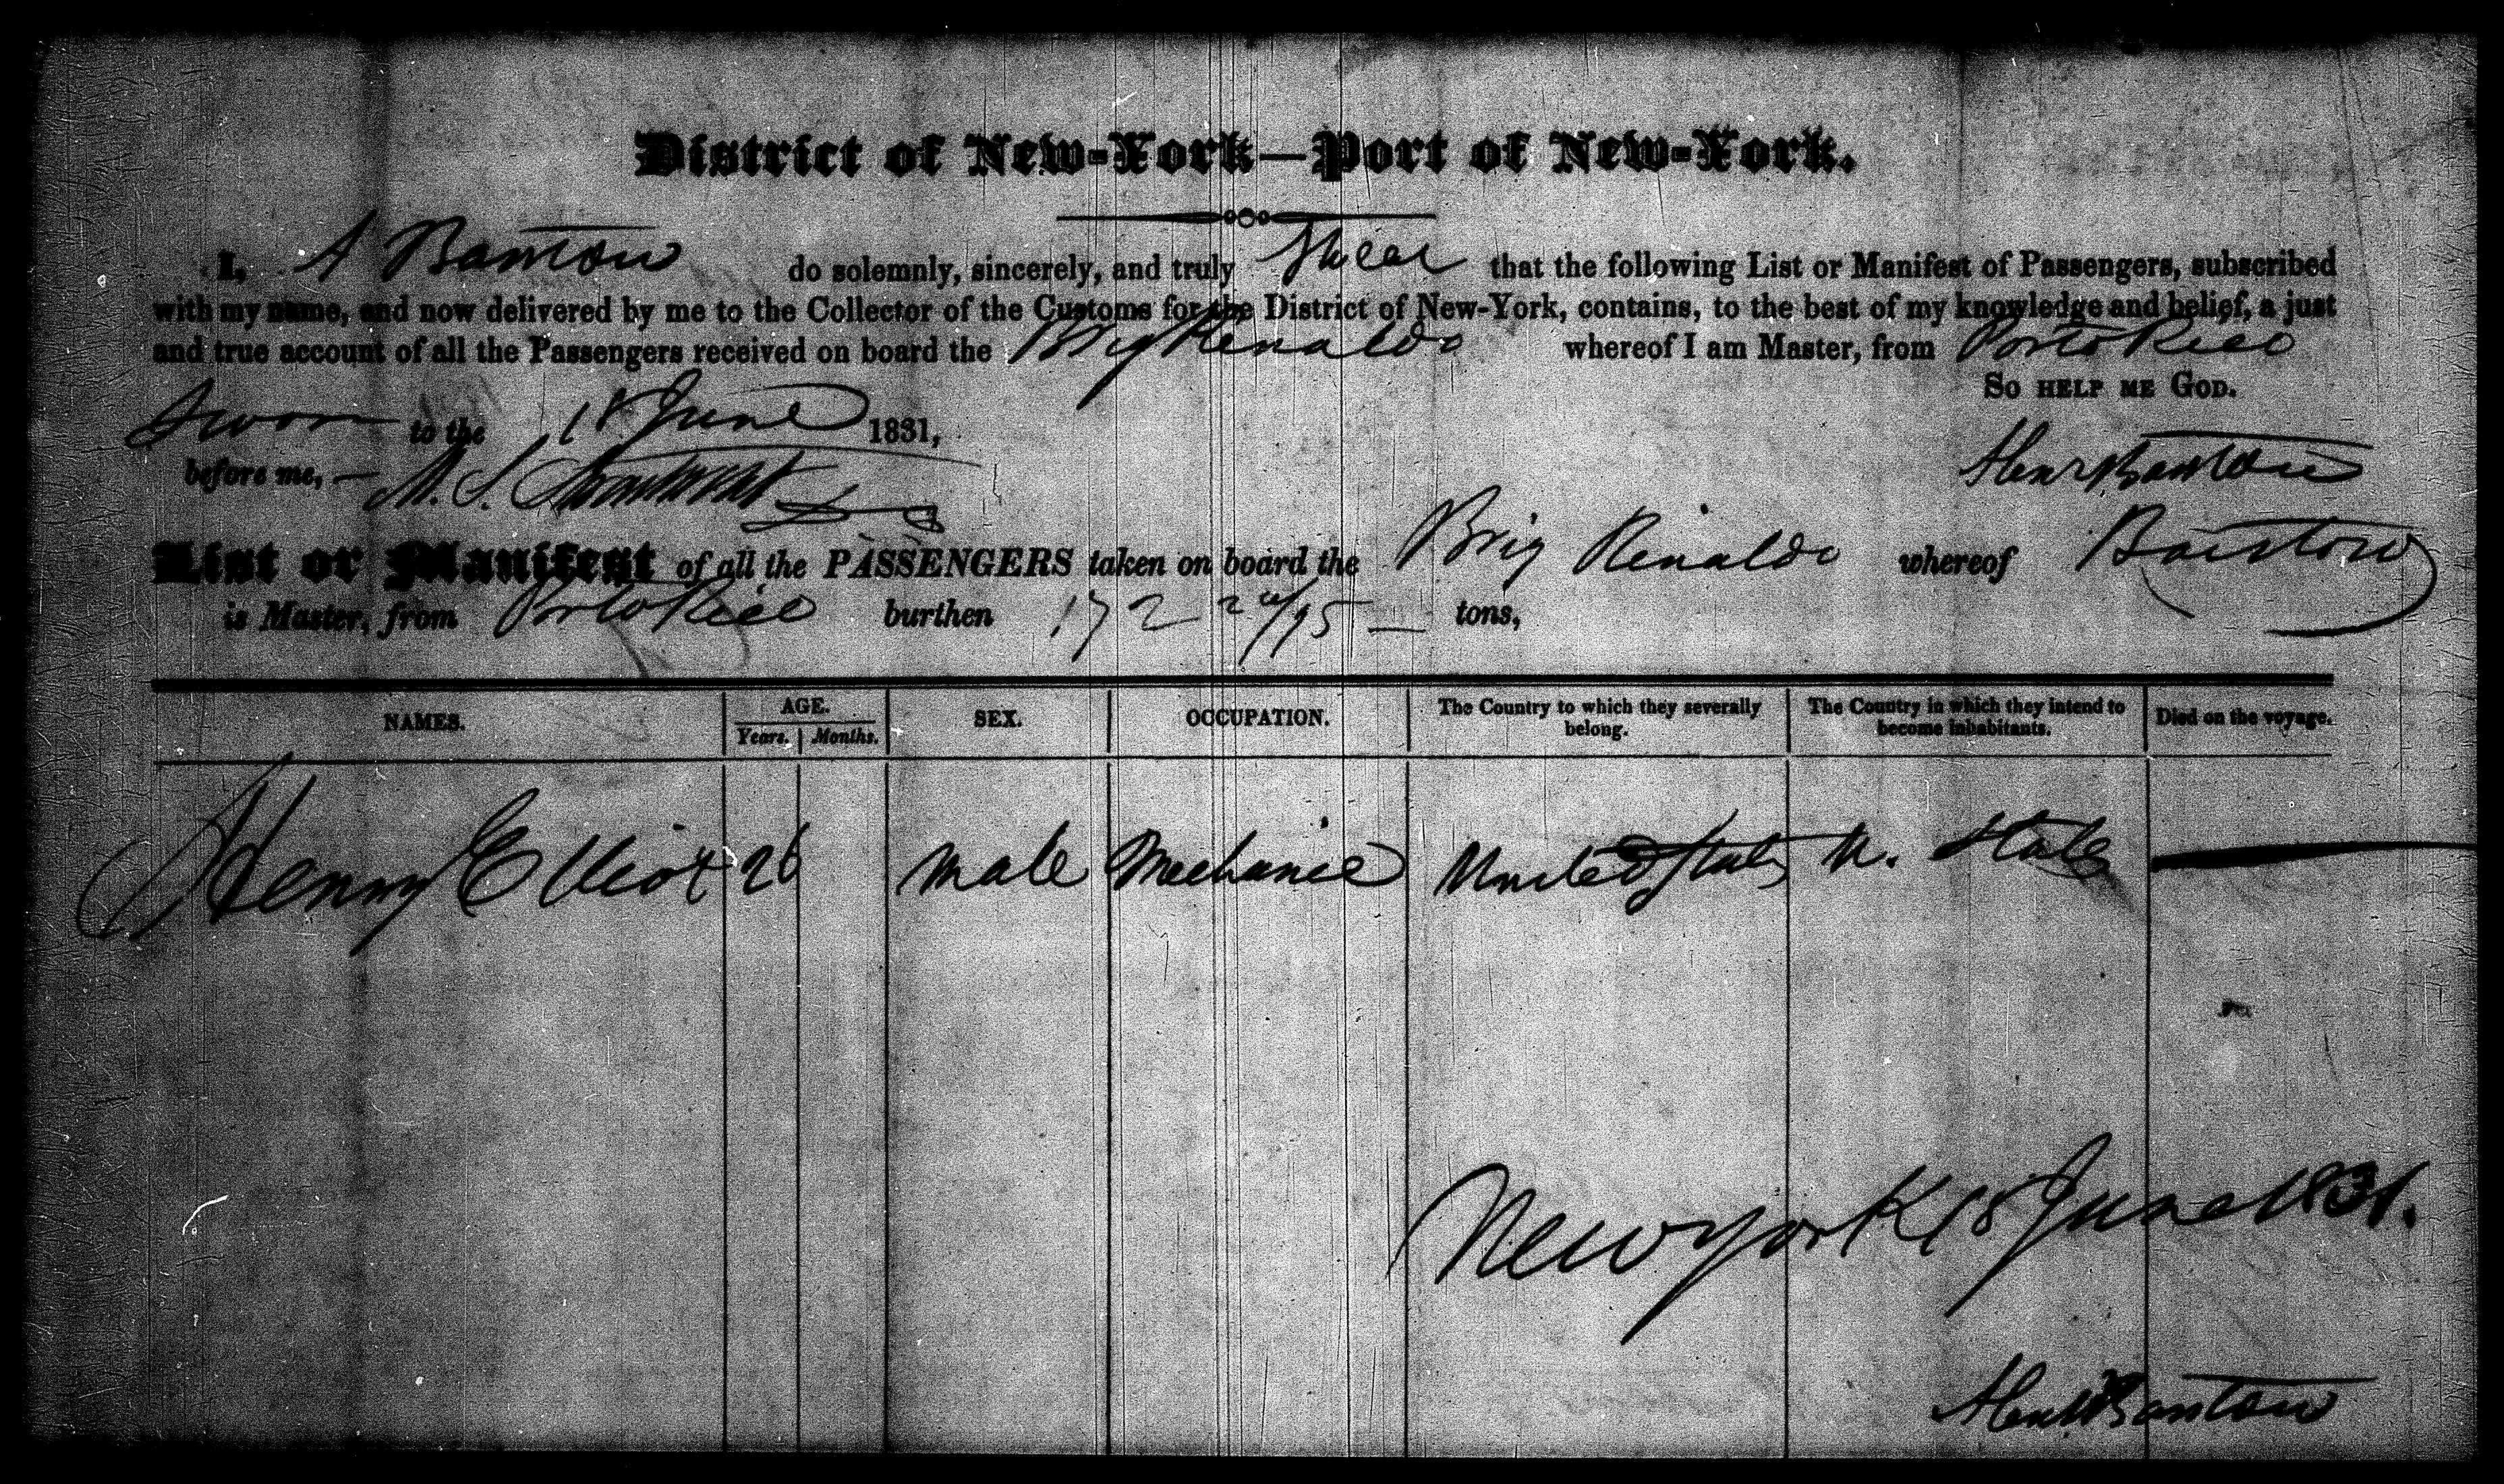 District of New-York—Port of New-York.
I, A Barstow do solemnly, sincerely, and truly Swear that the following List or Manifest of Passengers, subscribed
with my name, and now delivered by me to the Collector of the Customs for the District of New-York, contains, to the best of my knowledge and belief, a just
and true account of all the Passengers received on board the Brig Renaldo whereof I am Master, from Porto Rico
So help me God.
Sworn to the 18 June 1831,
before me, M. S.
Barstow
List or Manifest of all the PASSENGERS taken on board the Brig Renaldo whereof Barstow
is Master, from Porto Rico burthen 172 /95 tons,
NAMES. AGE. SEX. OCCUPATION. The Country to which they severally belong. The Country in which they intend to become inhabitants. Died on the voyage.
Years. Months.
Henry Elliot 26 male Mechanic United States U. States
New York 18 June 1831.
Barstow